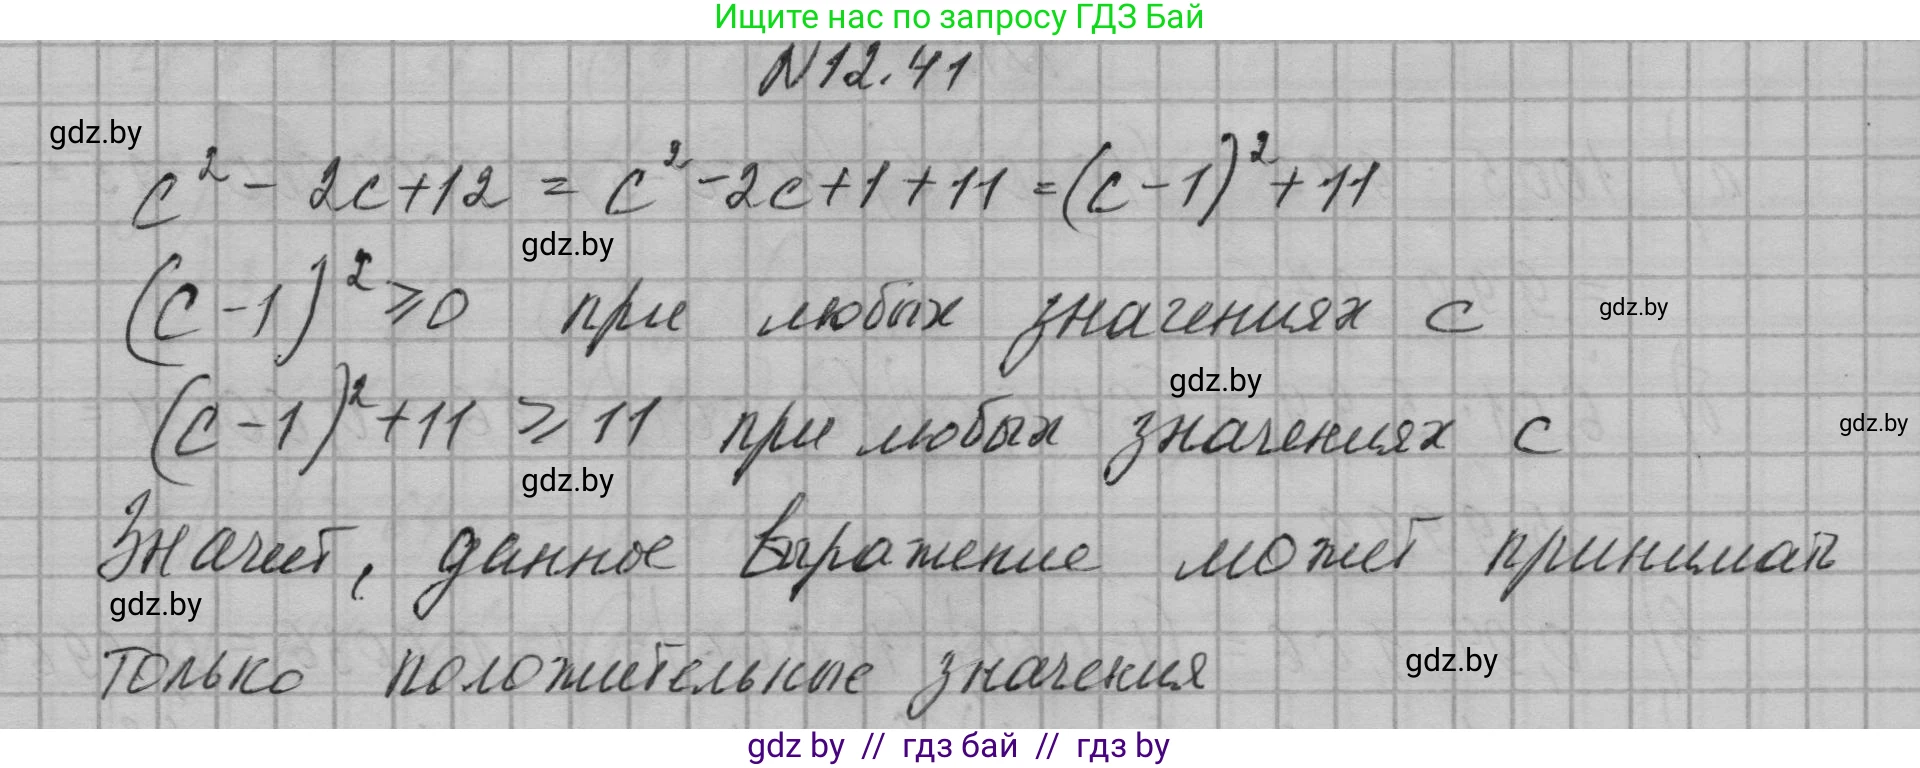 Ищите нас по запросу ГДЗ Бай
N12.41
gdz.by
c² - 2c+12 = c² -2c+1+11 =(c-1)²+11
gdz.by
(c-1)² ⩾0 при любых значениях c
gdz.by
gdz.by
(c-1)²+11 ⩾ 11 при любых значениях c
gdz.by
gdz.by
Значит, данное выражение может принимать
gdz.by
только положительные значения
gdz.by
gdz by // гдз бай // гдз by